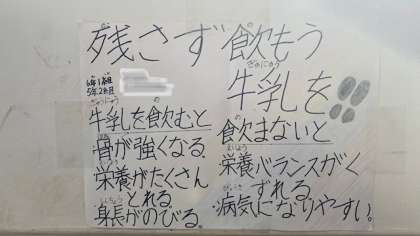 残さず飲もう
牛乳を
6年1組
5年2組
牛乳を飲むと
骨が強くなる。
栄養がたくさん
とれる。
身長がのびる。
飲まないと
栄養バランスがく
ずれる。
病気になりやすい。